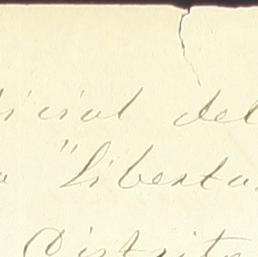 icial del
"Liberta
Distrito